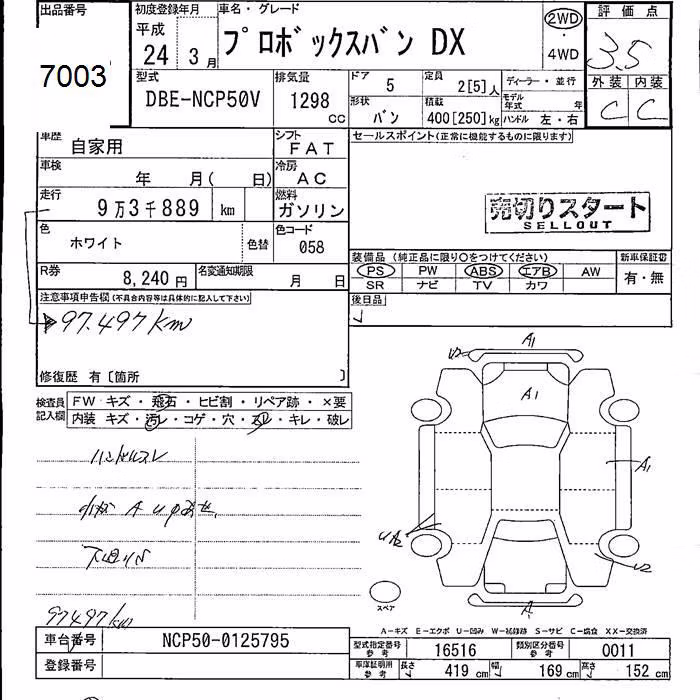 出品番号 初度登録年月 車名・グレード 評価点
7003 平成 24 3月 プロボックスバン DX 2WD ・ 4WD 3.5
型式 排気量 ドア 5 定員 2[5]人 ディーラー・並行 外装 内装
DBE-NCP50V 1298 cc 形状 バン 積載 400[250]kg モデル年式 年 ハンドル 左・右 C C
車歴 自家用 シフト FAT セールスポイント(正常に機能するものに限ります)
車検 年 月( 日) 冷房 AC
走行 9万3千889 km 燃料 ガソリン
売切りスタート
SELLOUT
色 ホワイト 色替 色コード 058
装備品 (純正品に限り○をつけてください) 新車保証書
R券 8,240円 名変通知期限 月 日 PS PW ABS エアB AW 有・無
SR ナビ TV カワ
注意事項申告欄(不具合内容等は具体的に記入して下さい) 後日品
97.497km
修復歴 有[箇所 ]
A1
U2
A1
検査員記入欄 FW キズ・飛石・ヒビ割・リペア跡・×要
内装 キズ・汚レ・コゲ・穴・スレ・キレ・破レ
ハンドルスレ
A1
UA2
U2
スペア
A
97497km
A-キズ E-エクボ U-凹み W-補修跡 S-サビ C-腐食 XX-交換済
車台番号 NCP50-0125795 型式指定番号 参考 16516 類別区分番号 参考 0011
登録番号 車庫証明用 参考 長さ 419cm 幅 169cm 高さ 152cm